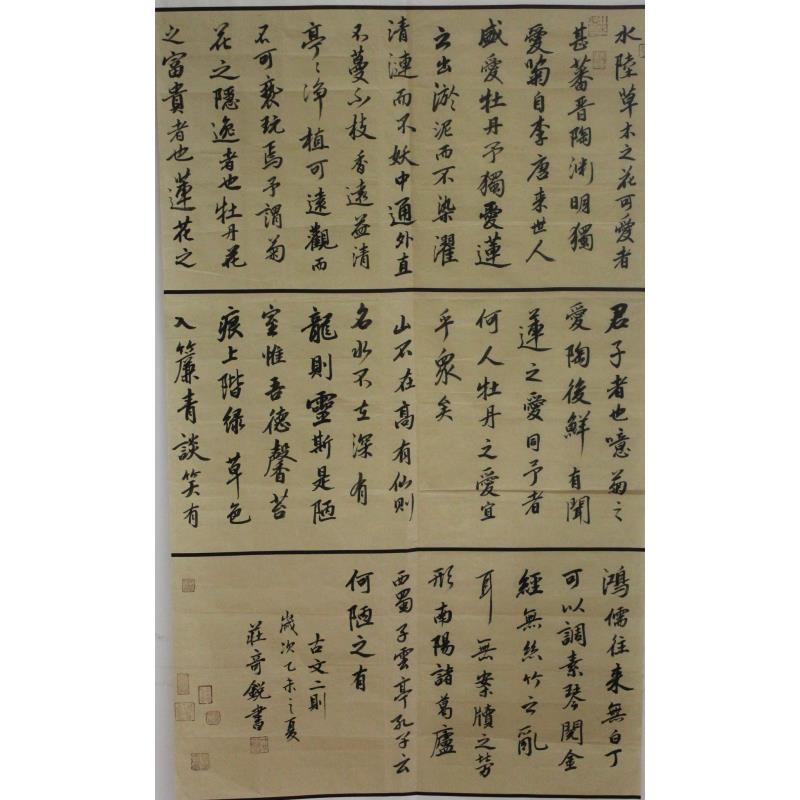 水陸草木之花可愛者
甚蕃晋陶渊明獨
愛菊自李唐来世人
盛愛牡丹予獨愛蓮
之出淤泥而不染濯
清漣而不妖中通外直
不蔓不枝香遠益清
亭々淨植可遠觀而
不可褻玩焉予謂菊
花之隱逸者也牡丹花
之富貴者也蓮花之
君子者也噫菊之
愛陶後鮮有聞
蓮之愛同予者
何人牡丹之愛宜
乎衆矣
山不在高有仙則
名水不在深有
龍則靈斯是陋
室惟吾德馨苔
痕上階緑草色
入簾青談笑有
鴻儒往来無白丁
可以調素琴閱金
經無絲竹之亂
耳無案牘之劳
形南陽諸葛廬
西蜀子雲亭孔子云
何陋之有
古文二則
歲次乙未之夏
莊奇銳書